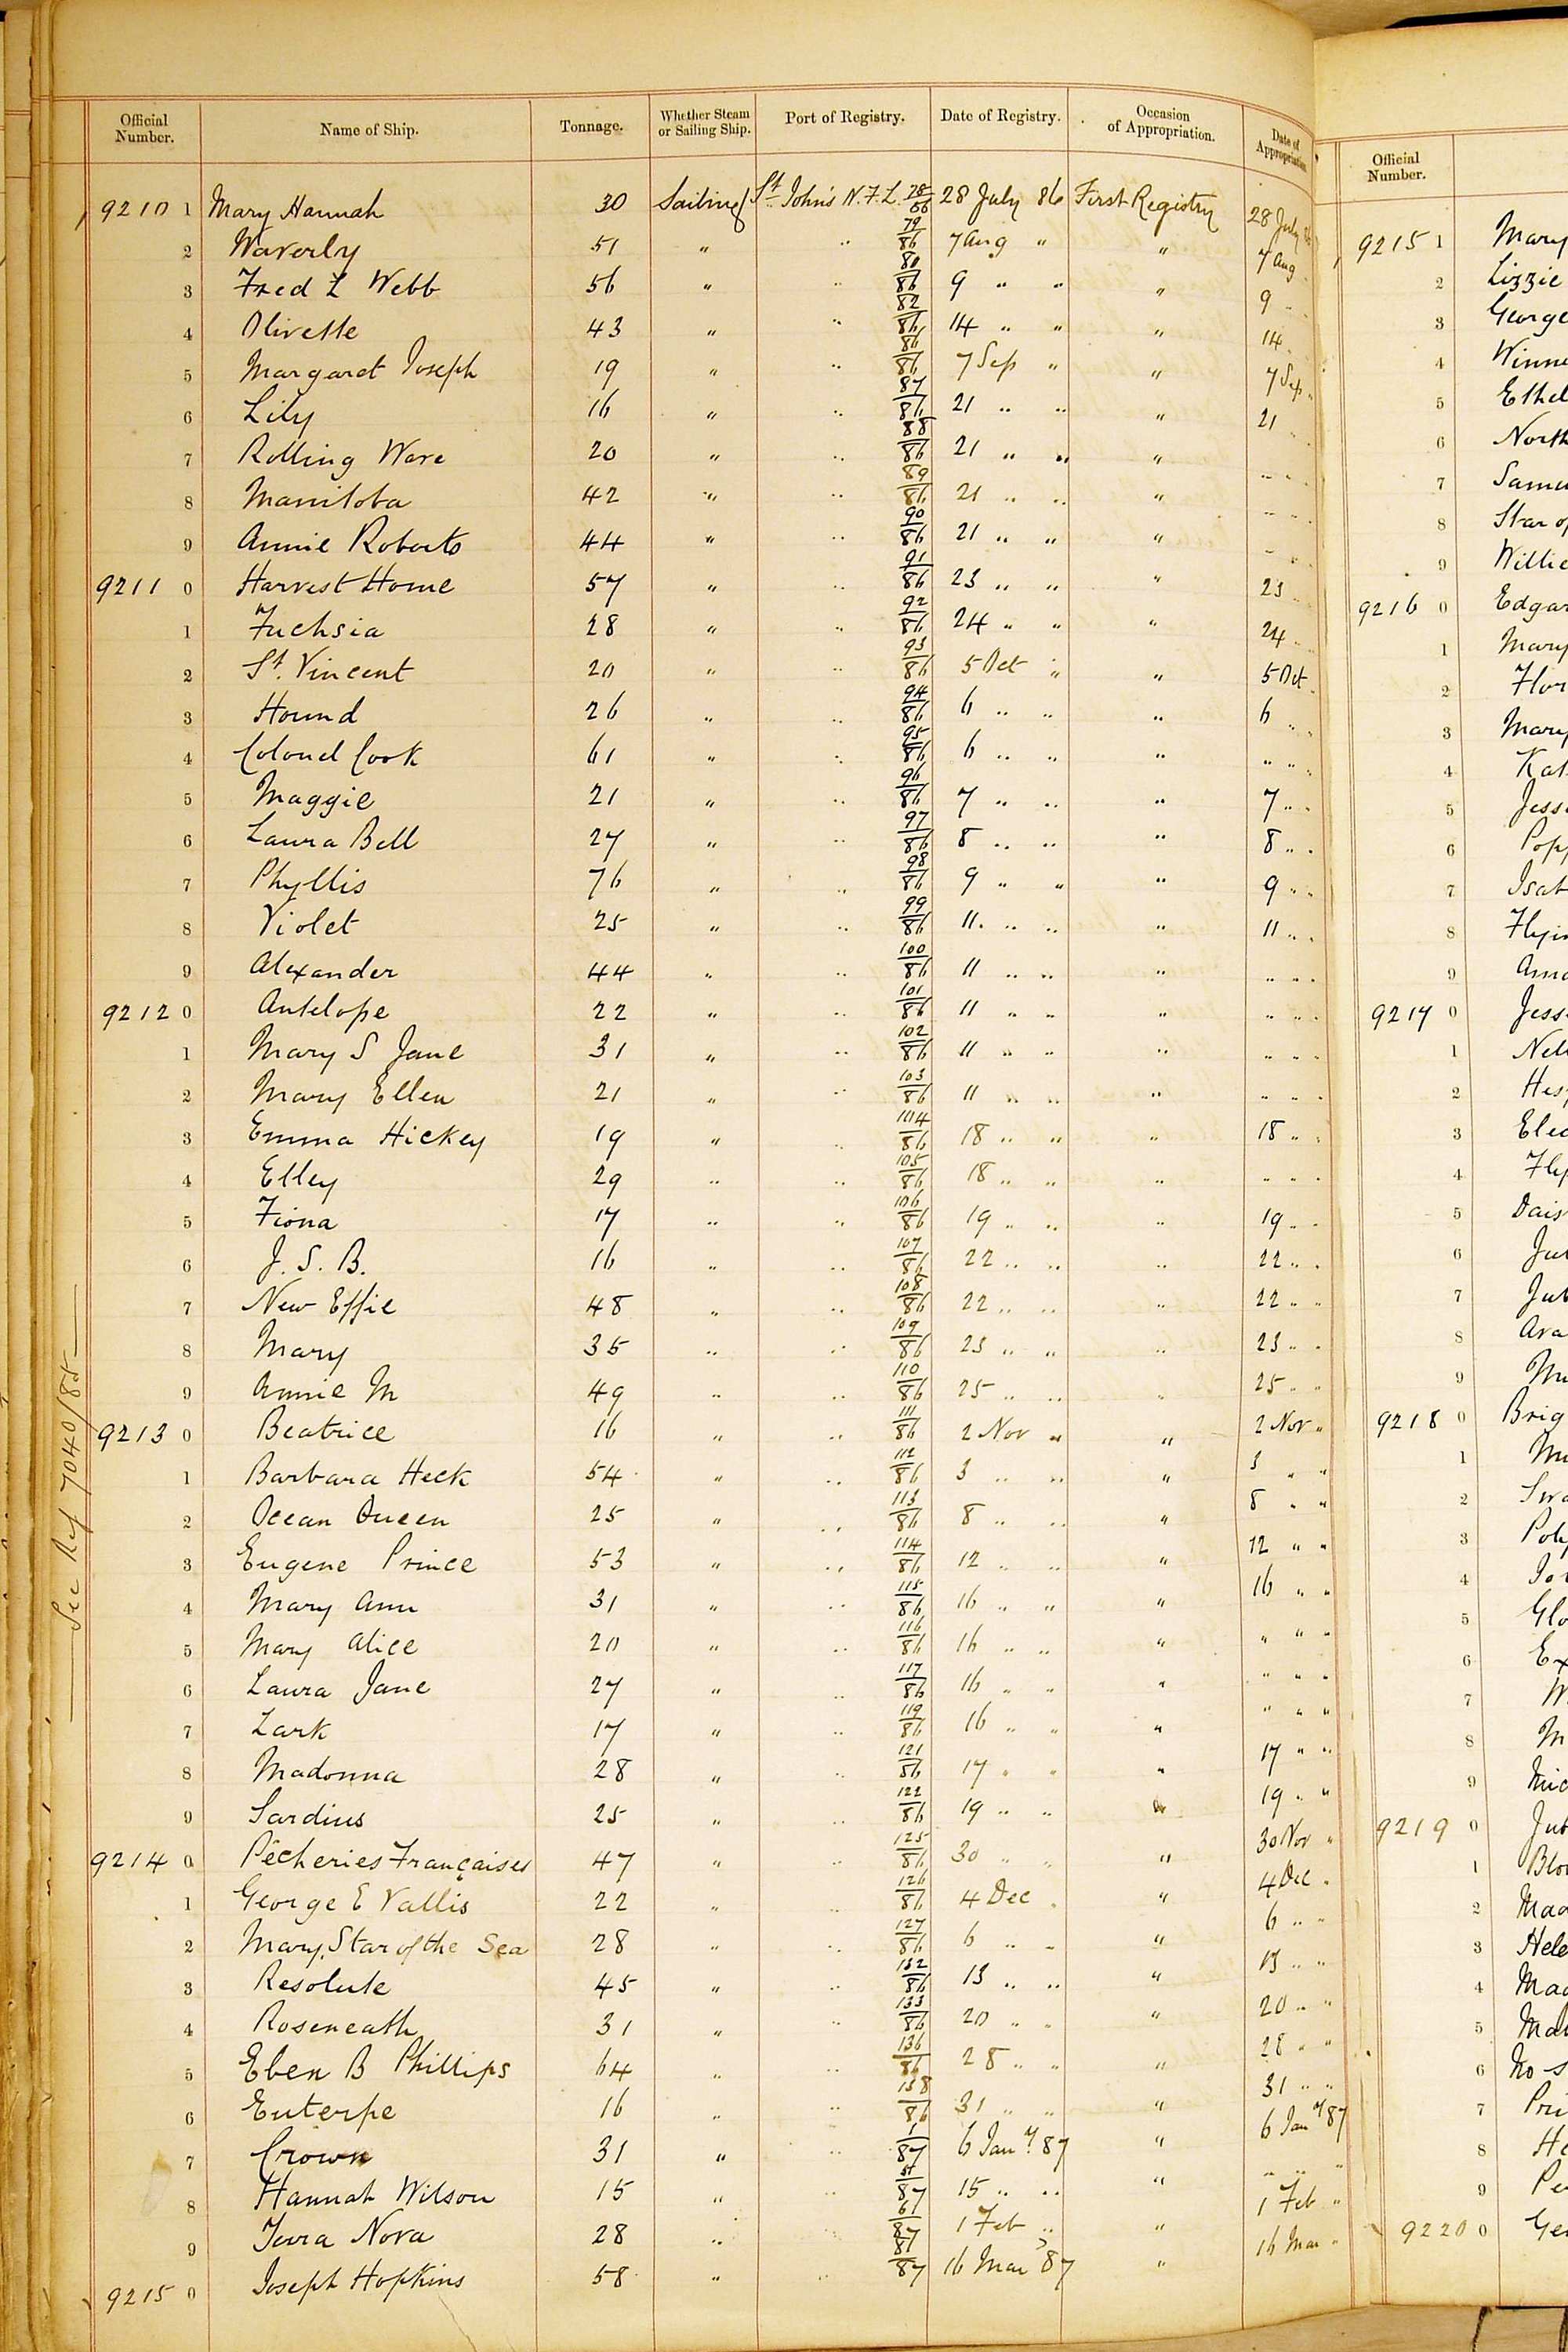 Official Number. Name of Ship. Tonnage. Whether Steam or Sailing Ship. Port of Registry. Date of Registry. Occasion of Appropriation. Date of Appropriation
9210 1 Mary Hannah 30 Sailing St. John's N.F.L. 78/86 28 July 86 First Registry 28 July
2 Waverly 51 " " 79/86 7 Aug " " 7 Aug
3 Fred L Webb 56 " " 80/86 9 " " " 9 "
4 Olivette 43 " " 82/86 14 " " " 14
5 Margaret Joseph 19 " " 86/86 7 Sep " " 7 Sep "
6 Lily 16 " " 87/86 21 " " " 21
7 Rolling Wave 20 " " 88/86 21 " " " " "
8 Manitoba 42 " " 89/86 21 " " " " "
9 Annie Roberts 44 " " 90/86 21 " " " " "
9211 0 Harvest Home 57 " " 91/86 23 " " " 23
1 Fuchsia 28 " " 92/86 24 " " " 24 "
2 St. Vincent 20 " " 93/86 5 Oct " " 5 Oct
3 Hound 26 " " 94/86 6 " " " 6 " "
4 Colonel Cook 61 " " 95/86 6 " " " " " "
5 Maggie 21 " " 96/86 7 " " " 7 " "
6 Laura Bell 27 " " 97/86 8 " " " 8 " "
7 Phyllis 76 " " 98/86 9 " " " 9 " "
8 Violet 25 " " 99/86 11 " " " 11 " "
9 Alexander 44 " " 100/86 11 " " " " " "
9212 0 Antelope 22 " " 101/86 11 " " " " " "
1 Mary S Jane 31 " " 102/86 11 " " " " " "
2 Mary Ellen 21 " " 103/86 11 " " " " " "
3 Emma Hickey 19 " " 104/86 18 " " " 18 " "
4 Elley 29 " " 105/86 18 " " " " " "
5 Fiona 17 " " 106/86 19 " " " 19 " "
6 J. S. B. 16 " " 107/86 22 " " " 22 " "
7 New Effie 48 " " 108/86 22 " " " 22 " "
8 Mary 35 " " 109/86 23 " " " 23 " "
9 Annie M 49 " " 110/86 25 " " " 25 " "
9213 0 Beatrice 16 " " 111/86 2 Nov " " 2 Nov "
1 Barbara Heck 54 " " 112/86 3 " " " 3 " "
2 Ocean Queen 25 " " 113/86 8 " " " 8 " "
3 Eugene Prince 53 " " 114/86 12 " " " 12 " "
4 Mary Ann 31 " " 115/86 16 " " " 16 " "
5 Mary Alice 20 " " 116/86 16 " " " " " "
6 Laura Jane 27 " " 117/86 16 " " " " " "
7 Lark 17 " " 119/86 16 " " " " " "
8 Madonna 28 " " 121/86 17 " " " 17 " "
9 Sardius 25 " " 122/86 19 " " " 19 " "
9214 0 Pêcheries Françaises 47 " " 125/86 30 " " " 30 Nov "
1 George E Vallis 22 " " 126/86 4 Dec " " 4 Dec "
2 Mary, Star of the Sea 28 " " 127/86 6 " " " 6 " "
3 Resolute 45 " " 132/86 13 " " " 13 " "
4 Roseneath 31 " " 133/86 20 " " " 20 " "
5 Eben B Phillips 64 " " 136/86 28 " " " 28 " "
6 Euterpe 16 " " 138/86 31 " " " 31 " "
7 Crown 31 " " 1/87 6 Jany 87 " 6 Jany 87
8 Hannah Wilson 15 " " 87 15 " " " " " "
9 Terra Nova 28 " " 6/87 1 Feb " " 1 Feb "
9215 0 Joseph Hopkins 58 " " 8/87 16 Mar 87 " 16 Mar "
See Ref 7040/85
Official Number.
9215 1 Mary
2 Lizzie
3 George
4 Winne
5 Ethel
6 North
7 Samu
8 Star of
9 Willie
9216 0 Edgar
1 Mary
2 Flor
3 Mary
4 Kat
5 Jess
6 Pop
7 Isab
8 Flyin
9 Ama
9217 0 Jess
1 Nel
2 Hes
3 Elec
4 Fly
5 Dais
6 Jub
7 Jub
8 Ara
9 Mu
9218 0 Brig
1 Mu
2 Swa
3 Poly
4 Jo
5 Glo
6 Ex
7 W
8 M
9 Mic
9219 0 Jub
1 Blo
2 Mad
3 Hele
4 Mad
5 Mal
6 No s
7 Pri
8 He
9 Pe
9220 0 Ge